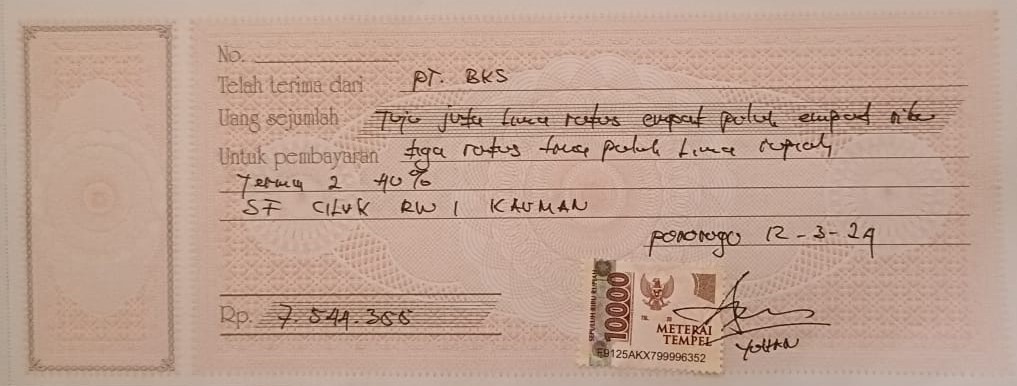 No.
Telah terima dari PT. BKS
Uang sejumlah Tuju juta Lima ratus empat puluh empat ribu
Untuk pembayaran tiga ratus lima puluh Lima rupiah
Termin 2 40%
SF CILUK RW 1 KAUMAN
ponorogo 12-3-24
Rp. 7.544.355
SEPULUH RIBU RUPIAH
10000
METERAI
TEMPEL
E9125AKX799996352
YOHAN